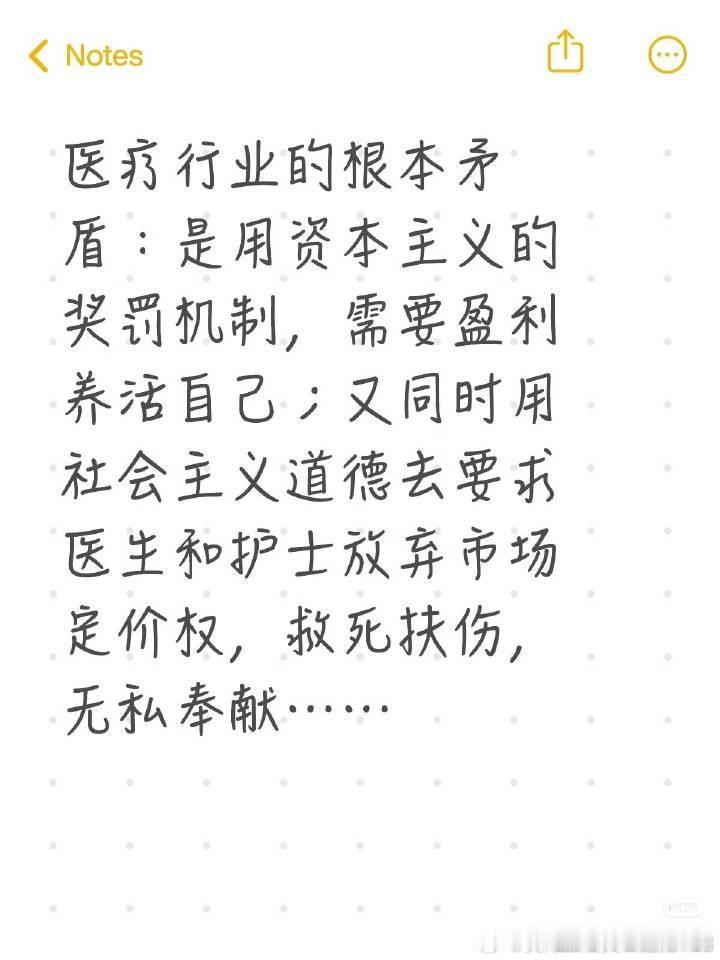 Notes
医疗行业的根本矛
盾：是用资本主义的
奖罚机制，需要盈利
养活自己；又同时用
社会主义道德去要求
医生和护士放弃市场
定价权，救死扶伤，
无私奉献……